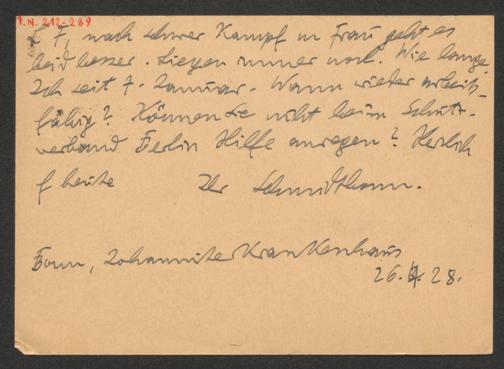 I.N. 212.289
L F, nach schwer Kampf m Frau geht es
beid besser. Liegen immer noch. Wie lange
Ich seit 7. Januar. Wann wieder arbeits-
fähig? Können Sie nicht beim Schutz-
verband Berlin Hilfe anregen? Herzlich
f heute Ihr Schmidtbonn.
Bonn, Johanniterkrankenhaus
26. 4. 28.